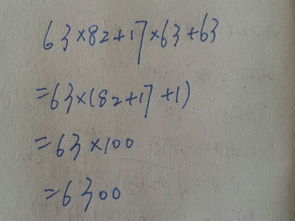 63×82+17×63+63
=63×(82+17+1)
=63×100
=6300